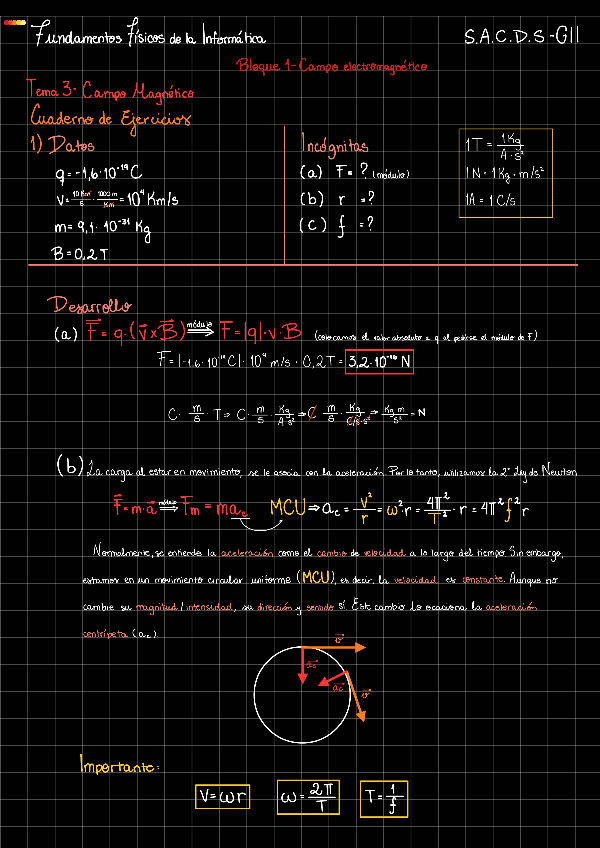 Fundamentos Físicos de la Informática
S.A.C.D.S-GII
Bloque 1-Campo electromagnético
Tema 3- Campo Magnético
Cuaderno de Ejercicios
1) Datos
q=-1,6·10⁻¹⁹ C
V= 10 Km/s · 1000 m/Km = 10⁴ Km/s
m= 9,1· 10⁻³¹ Kg
B=0,2 T
Incógnitas
(a) F= ? (módulo)
(b) r =?
(c) f =?
1T = 1Kg/A·s²
1N = 1Kg·m/s²
1A = 1C/s
Desarrollo
(a) F⃗= q·(v⃗×B⃗) módulo ⟹ F=|q|·v·B (colocamos el valor absoluto a q al pedirse el módulo de F)
F=|-1,6·10⁻¹⁹ C|·10⁴ m/s · 0,2T = 3,2·10⁻¹⁶ N
C· m/s · T ⇒ C· m/s · Kg/A·s² ⇒ C m/s · Kg/C/s·s² ⇒ Kg·m/s² = N
(b) La carga al estar en movimiento, se le asocia con la aceleración. Por lo tanto, utilizamos la 2ª Ley de Newton
F⃗=m·a⃗ módulo ⟹ Fm = mac MCU ⇒ ac = v²/r = ω²·r = 4π²/T² · r = 4π² f² r
Normalmente, se entiende la aceleración como el cambio de velocidad a lo largo del tiempo. Sin embargo,
estamos en un movimiento circular uniforme (MCU), es decir, la velocidad es constante. Aunque no
cambie su magnitud/intensidad, su dirección y sentido sí. Este cambio lo ocasiona la aceleración
centrípeta (ac)
v⃗
ac⃗
ac⃗
v⃗
Importante:
V=ωr
ω= 2π/T
T= 1/f